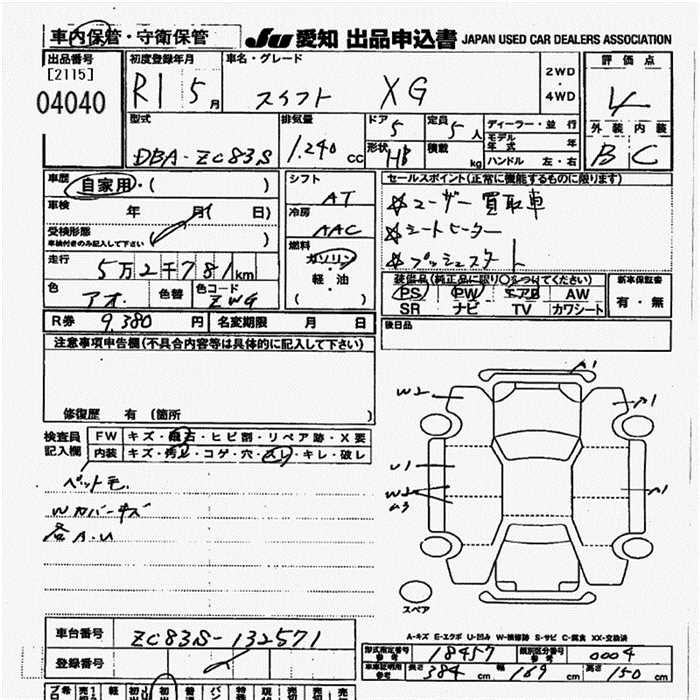 車内保管・守衛保管
JU 愛知 出品申込書 JAPAN USED CAR DEALERS ASSOCIATION
出品番号
[2115]
04040
初度登録年月
R1 5月
車名・グレード
スイフト XG
2WD
4WD
評価点
4
外装 内装
B C
型式
DBA-ZC83S
排気量
1.240 cc
ドア
5
形状
HB
定員
5人
積載
kg
ディーラー・並行
モデル年式 年
ハンドル 左・右
車歴
自家用・( )
車検 年 月( 日)
受検形態
車検付きのみ記入して下さい ( )
走行
5万2千781km
色
アオ
色替
色コード
ZWG
シフト
AT
冷房
AAC
燃料
ガソリン
・
軽・油
( )
R券 9,380 円
名変期限 月 日
セールスポイント(正常に機能するものに限ります)
☆ユーザー買取車
☆シートヒーター
☆プッシュスタート
装備品(純正品に限り○をつけてください)
PS PW エアB AW
SR ナビ TV カワシート
新車保証書
有・無
後日品
注意事項申告欄(不具合内容等は具体的に記入して下さい)
修復歴 有 (箇所 )
検査員
記入欄
FW キズ・飛石・ヒビ割・リペア跡・X要
内装 キズ・汚れ・コゲ・穴・スレ・キレ・破レ
ペット毛
Wカバーキズ
各A.U
A1
W2
A1
U1
W2
A3
A1
スペア
A-キズ E-エクボ U-凹み W-補修跡 S-サビ C-腐食 XX-交換済
車台番号 ZC83S-132571
登録番号
型式指定番号 18457
類別区分番号 0004
車庫証明用参考 長さ 384 cm 幅 169 cm 高さ 150 cm